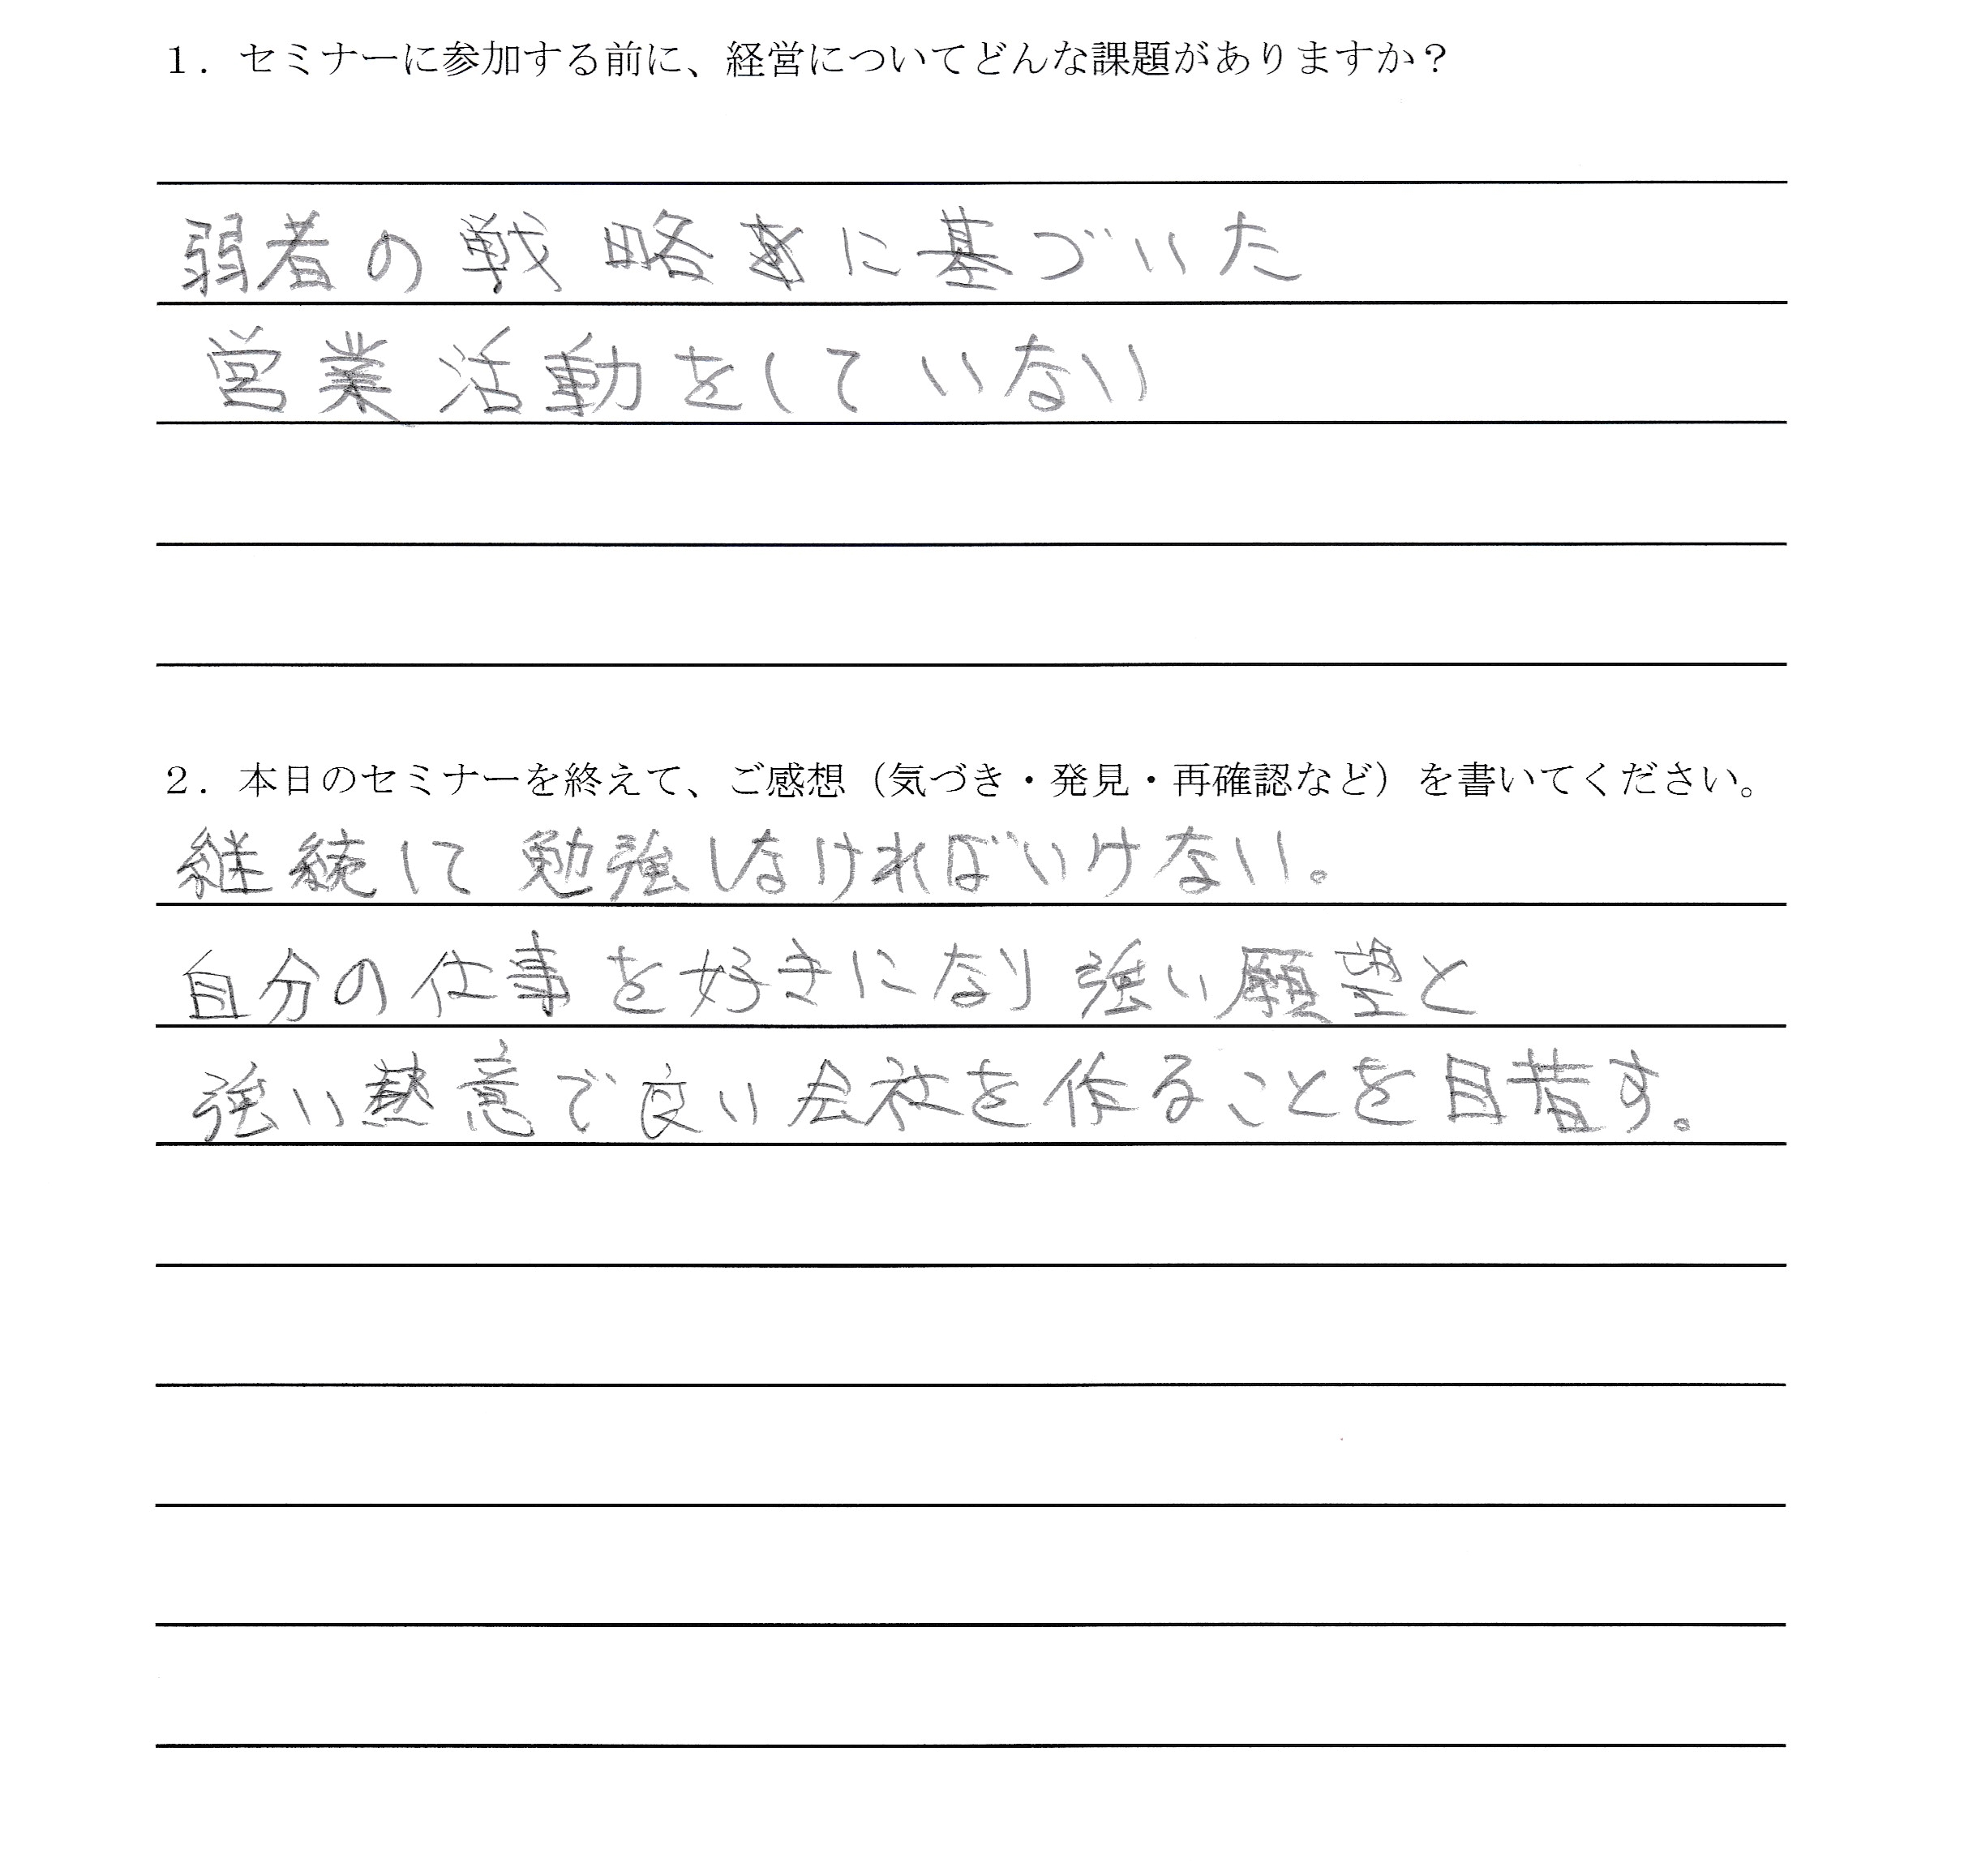 １．セミナーに参加する前に、経営についてどんな課題がありますか？
弱者の戦略に基づいた
営業活動をしていない
２．本日のセミナーを終えて、ご感想（気づき・発見・再確認など）を書いてください。
継続して勉強しなければいけない。
自分の仕事を好きになり強い願望と
強い熱意で良い会社を作ることを目指す。